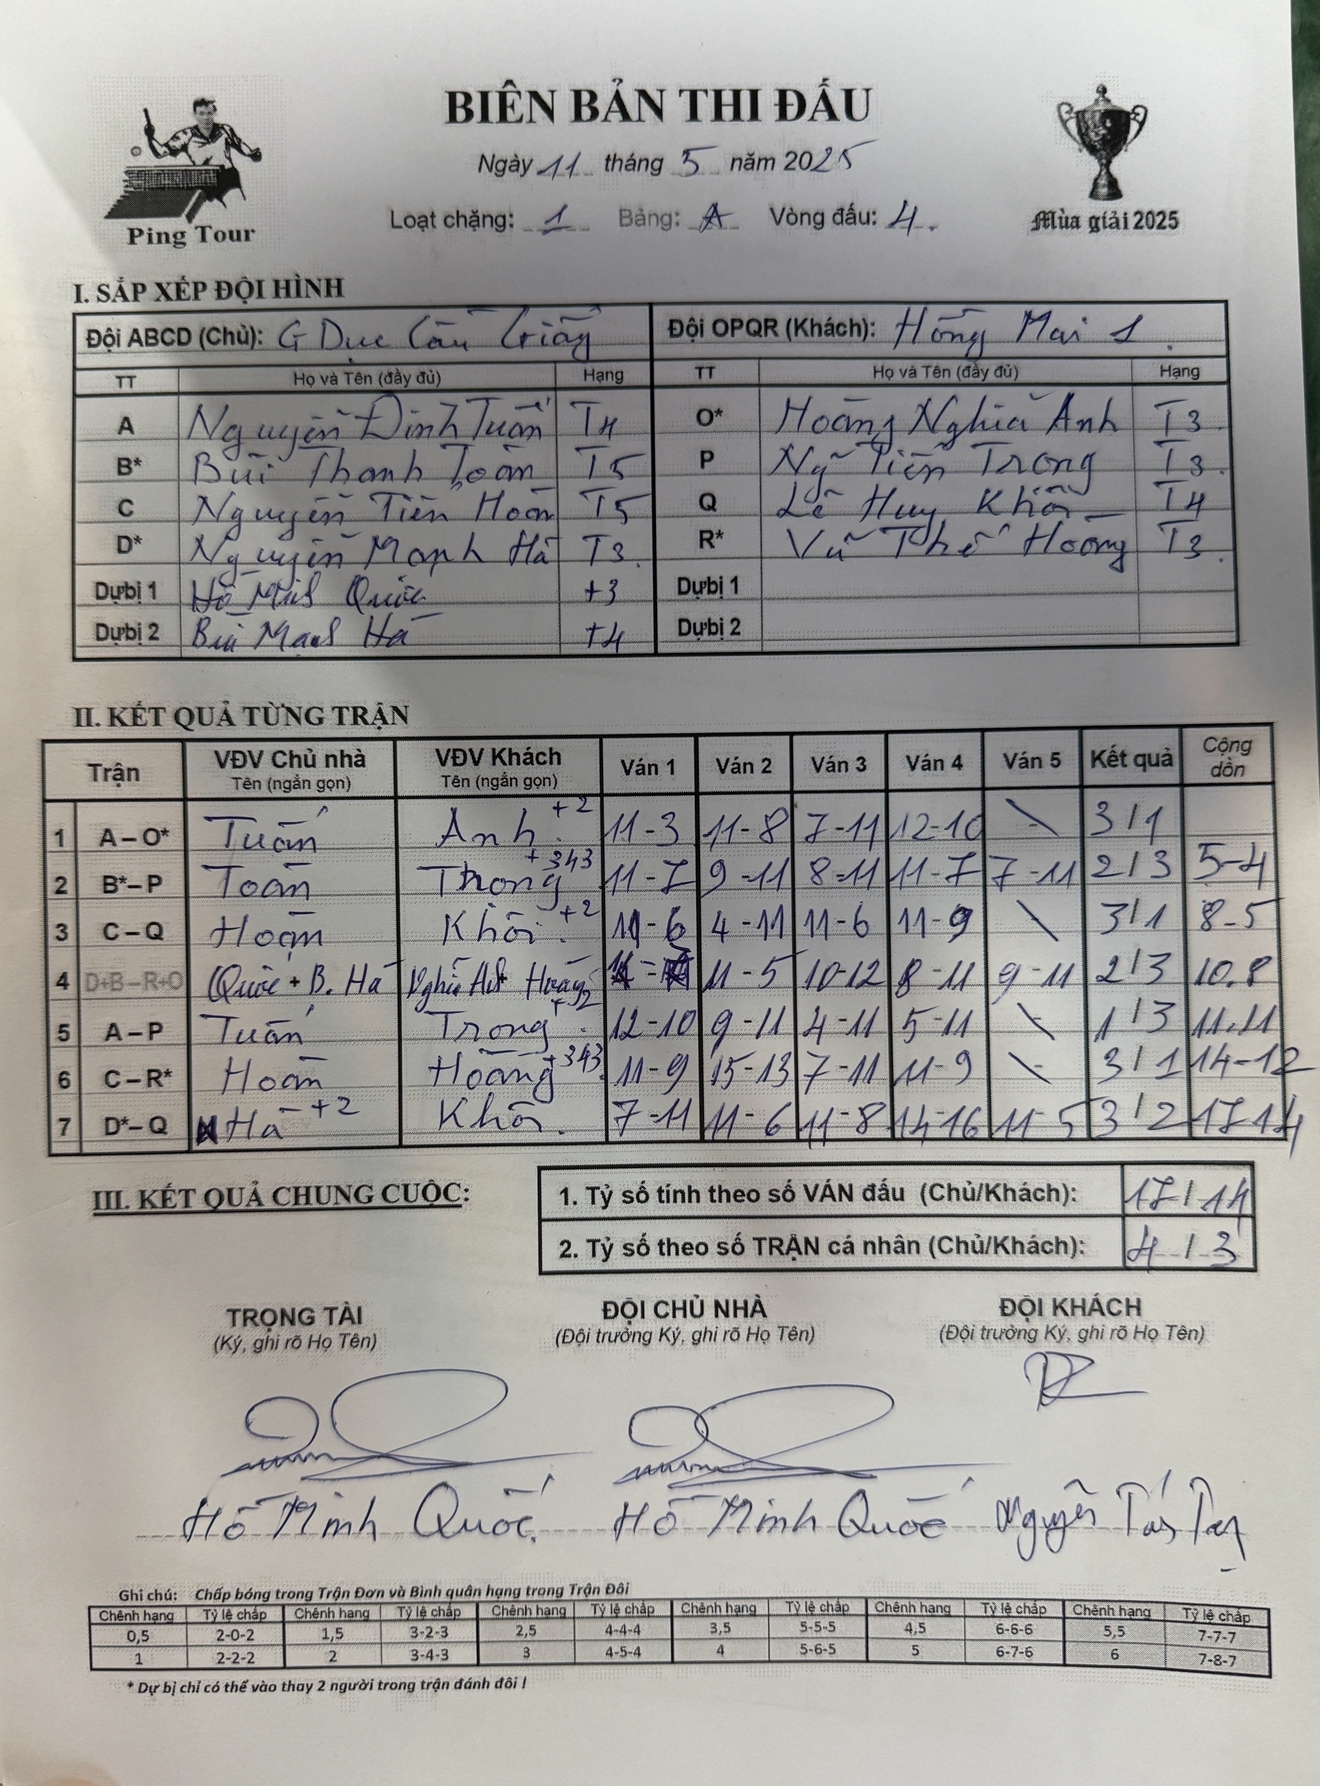 BIÊN BẢN THI ĐẤU
Ngày 11 tháng 5 năm 2025
Loạt chặng: 1 Bảng: A Vòng đấu: 4.
Ping Tour
Mùa giải 2025
I. SẮP XẾP ĐỘI HÌNH
Đội ABCD (Chủ): G Dục Cẩm Giàng Đội OPQR (Khách): Hồng Mai 1
TT Họ và Tên (đầy đủ) Hạng TT Họ và Tên (đầy đủ) Hạng
A Nguyễn Đình Tuấn T4 O* Hoàng Nghĩa Anh T3
B* Bùi Thanh Toàn T5 P Ngô Tiến Trọng T3
C Nguyễn Tiến Hoàn T5 Q Lê Huy Khôi T4
D* Nguyễn Mạnh Hà T3 R* Vũ Thế Hoàng T3
Dự bị 1 Hồ Minh Quốc +3 Dự bị 1
Dự bị 2 Bùi Mạnh Hà +4 Dự bị 2
II. KẾT QUẢ TỪNG TRẬN
Trận VĐV Chủ nhà Tên (ngắn gọn) VĐV Khách Tên (ngắn gọn) Ván 1 Ván 2 Ván 3 Ván 4 Ván 5 Kết quả Cộng dồn
1 A – O* Tuấn Anh +2 11-3 11-8 7-11 12-10 \ 3/1
2 B* – P Toàn Trọng +343 11-7 9-11 8-11 11-7 7-11 2/3 5-4
3 C – Q Hoàn Khôi +2 11-6 4-11 11-6 11-9 \ 3/1 8-5
4 D+B – R+O Quốc + B. Hà Nghĩa Anh Hoàng 11-5 10-12 8-11 9-11 2/3 10.8
5 A – P Tuấn Trọng +2 12-10 9-11 4-11 5-11 \ 1/3 11.11
6 C – R* Hoàn Hoàng +343 11-9 15-13 7-11 11-9 \ 3/1 14-12
7 D* – Q Hà +2 Khôi 7-11 11-6 11-8 14-16 11-5 3/2 17-14
III. KẾT QUẢ CHUNG CUỘC:
1. Tỷ số tính theo số VÁN đấu (Chủ/Khách): 17/14
2. Tỷ số theo số TRẬN cá nhân (Chủ/Khách): 4/3
TRỌNG TÀI ĐỘI CHỦ NHÀ ĐỘI KHÁCH
(Ký, ghi rõ Họ Tên) (Đội trưởng Ký, ghi rõ Họ Tên) (Đội trưởng Ký, ghi rõ Họ Tên)
Hồ Minh Quốc Hồ Minh Quốc Nguyễn
Ghi chú: Chấp bóng trong Trận Đơn và Bình quân hạng trong Trận Đôi
Chênh hạng Tỷ lệ chấp Chênh hạng Tỷ lệ chấp Chênh hạng Tỷ lệ chấp Chênh hạng Tỷ lệ chấp Chênh hạng Tỷ lệ chấp Chênh hạng Tỷ lệ chấp
0,5 2-0-2 1,5 3-2-3 2,5 4-4-4 3,5 5-5-5 4,5 6-6-6 5,5 7-7-7
1 2-2-2 2 3-4-3 3 4-5-4 4 5-6-5 5 6-7-6 6 7-8-7
* Dự bị chỉ có thể vào thay 2 người trong trận đánh đôi !